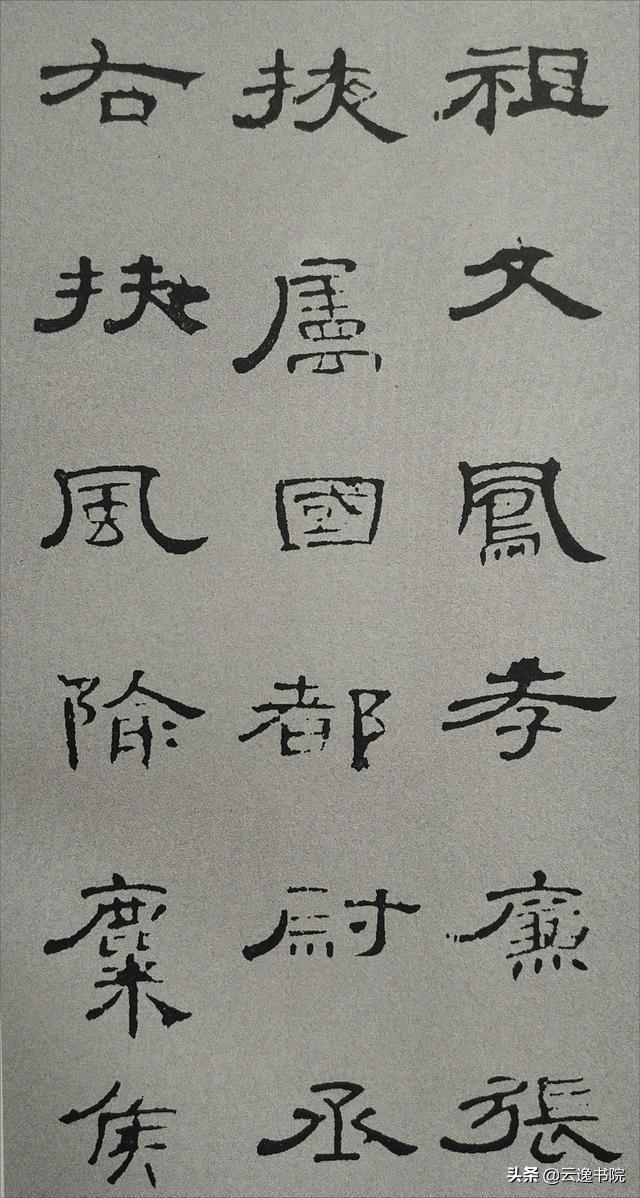 祖父鳳孝廉張
掖屬國都尉丞
右扶風隃麋侯
头条 @云逸书院